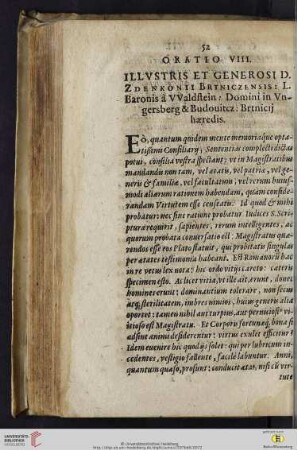 52
ORATIO VIII.
ILLVSTRIS ET GENEROSI D.
ZDENKONII BRTNICZENSIS: L.
Baronis à VValdstein: Domini in Vn-
gersberg & Budouitcz: Brtnicij
hæredis.
EO, quantum quidem mente memoriaque opta-
tissimi Consiliarij, Sententias complecti dictas
potui, consilia vestra spectant; vt in Magistratibus
mandandis non tam, vel ætatis, vel patriæ, vel ge-
neris & familiæ, vel facultatum, vel rerum huius-
modi aliarum rationem habendam, quàm conside-
randam Virtutem esse censeatis. Id quod & mihi
probatur: nec sine ratione probatur Iudices S. Scri-
ptura requirit, sapientes, rerum intelligentes, ac
quorum probata conuersatio est. Magistratus qua-
rendos esse vos Plato statuit, qui probitatis singulas
per ætates testimonia habeant. Est Romanorum hac
in re vetus lex nota: hic ordo vitijs careto: cæteris
specimen esto. At licet vitia, vt ille ait erunt, donec
homines erunt; dominantium tolerari, non secus
atque, sterilitatem, imbres nimios, huius generis alia
oportet: tamen nihil aut turpius, aut perniciosius
vitioso est Magistratu. Et Corporis fortunæque bona si
adsint animi desiderentur: virtus exulet efficitur
Idem euenire hic quod ijs solet: qui per lubricum in-
cedentes, vestigio fallente, facilè labuntur. Anni,
quantum quæso, prosunt: conducit ætas, nisi cū vir-
tute